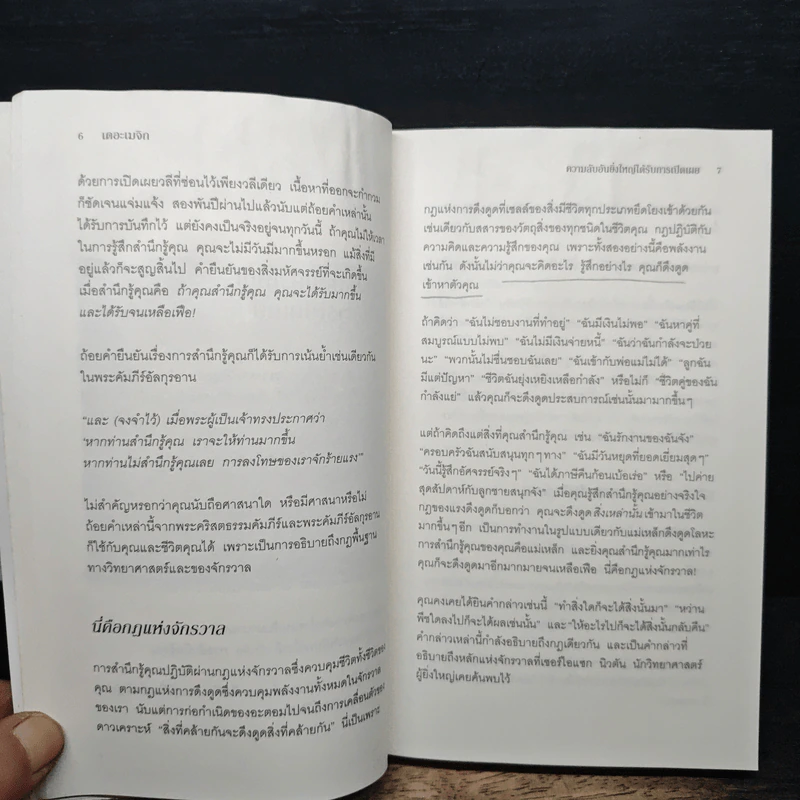 6 เดอะเมจิก
ด้วยการเปิดเผยวลีที่ซ่อนไว้เพียงวลีเดียว เนื้อหาที่ออกจะกำกวม
ก็ชัดเจนแจ่มแจ้ง สองพันปีผ่านไปแล้วนับแต่ถ้อยคำเหล่านั้น
ได้รับการบันทึกไว้ แต่ยังคงเป็นจริงอยู่จนทุกวันนี้ ถ้าคุณไม่ให้เวลา
ในการรู้สึกสำนึกรู้คุณ คุณจะไม่มีวันมีมากขึ้นหรอก แม้สิ่งที่มี
อยู่แล้วก็จะสูญสิ้นไป คำยืนยันของสิ่งมหัศจรรย์ที่จะเกิดขึ้น
เมื่อสำนึกรู้คุณคือ ถ้าคุณสำนึกรู้คุณ คุณจะได้รับมากขึ้น
และได้รับจนเหลือเฟือ!
ถ้อยคำยืนยันเรื่องการสำนึกรู้คุณก็ได้รับการเน้นย้ำเช่นเดียวกัน
ในพระคัมภีร์อัลกุรอาน
“และ (จงจำไว้) เมื่อพระผู้เป็นเจ้าทรงประกาศว่า
‘หากท่านสำนึกรู้คุณ เราจะให้ท่านมากขึ้น
หากท่านไม่สำนึกรู้คุณเลย การลงโทษของเราจักร้ายแรง’”
ไม่สำคัญหรอกว่าคุณนับถือศาสนาใด หรือมีศาสนาหรือไม่
ถ้อยคำเหล่านี้จากพระคริสตธรรมคัมภีร์และพระคัมภีร์อัลกุรอาน
ก็ใช้กับคุณและชีวิตคุณได้ เพราะเป็นการอธิบายถึงกฎพื้นฐาน
ทางวิทยาศาสตร์และของจักรวาล
นี่คือกฎแห่งจักรวาล
การสำนึกรู้คุณปฏิบัติผ่านกฎแห่งจักรวาลซึ่งควบคุมชีวิตทั้งชีวิตของ
คุณ ตามกฎแห่งการดึงดูดซึ่งควบคุมพลังงานทั้งหมดในจักรวาล
ของเรา นับแต่การก่อกำเนิดของอะตอมไปจนถึงการเคลื่อนตัวของ
ดาวเคราะห์ “สิ่งที่คล้ายกันจะดึงดูดสิ่งที่คล้ายกัน” นี่เป็นเพราะ
ความลับอันยิ่งใหญ่ได้รับการเปิดเผย 7
กฎแห่งการดึงดูดที่เซลล์ของสิ่งมีชีวิตทุกประเภทยึดโยงเข้าด้วยกัน
เช่นเดียวกับสสารของวัตถุสิ่งของทุกชนิดในชีวิตคุณ กฎปฏิบัติกับ
ความคิดและความรู้สึกของคุณ เพราะทั้งสองอย่างนี้คือพลังงาน
เช่นกัน ดังนั้นไม่ว่าคุณจะคิดอะไร รู้สึกอย่างไร คุณก็ดึงดูด
เข้าหาตัวคุณ
ถ้าคิดว่า “ฉันไม่ชอบงานที่ทำอยู่” “ฉันมีเงินไม่พอ” “ฉันหาคู่ที่
สมบูรณ์แบบไม่พบ” “ฉันไม่มีเงินจ่ายหนี้” “ฉันว่าฉันกำลังจะป่วย
นะ” “พวกนั้นไม่ชื่นชอบฉันเลย” “ฉันเข้ากับพ่อแม่ไม่ได้” “ลูกฉัน
มีแต่ปัญหา” “ชีวิตฉันยุ่งเหยิงเหลือกำลัง” หรือไม่ก็ “ชีวิตคู่ของฉัน
กำลังแย่” แล้วคุณก็จะดึงดูดประสบการณ์เช่นนั้นมามากขึ้นๆ
แต่ถ้าคิดถึงแต่สิ่งที่คุณสำนึกรู้คุณ เช่น “ฉันรักงานของฉันจัง”
“ครอบครัวฉันสนับสนุนทุกๆทาง” “ฉันมีวันหยุดที่ยอดเยี่ยมสุดๆ”
“วันนี้รู้สึกอัศจรรย์จริงๆ” “ฉันได้ภาษีคืนก้อนเบ้อเร่อ” หรือ “ไปค่าย
สุดสัปดาห์กับลูกชายสนุกจัง” เมื่อคุณรู้สึกสำนึกรู้คุณอย่างจริงใจ
กฎของแรงดึงดูดก็บอกว่า คุณจะดึงดูด สิ่งเหล่านั้น เข้ามาในชีวิต
มากขึ้นๆอีก เป็นการทำงานในรูปแบบเดียวกับแม่เหล็กดึงดูดโลหะ
การสำนึกรู้คุณของคุณคือแม่เหล็ก และยิ่งคุณสำนึกรู้คุณมากเท่าไร
คุณก็จะดึงดูดมาอีกมากมายจนเหลือเฟือ นี่คือกฎแห่งจักรวาล!
คุณคงเคยได้ยินคำกล่าวเช่นนี้ “ทำสิ่งใดก็จะได้สิ่งนั้นมา” “หว่าน
พืชใดลงไปก็จะได้ผลเช่นนั้น” และ“ให้อะไรไปก็จะได้สิ่งนั้นกลับคืน”
คำกล่าวเหล่านี้กำลังอธิบายถึงกฎเดียวกัน และเป็นคำกล่าวที่
อธิบายถึงหลักแห่งจักรวาลที่เซอร์ไอแซก นิวตัน นักวิทยาศาสตร์
ผู้ยิ่งใหญ่เคยค้นพบไว้